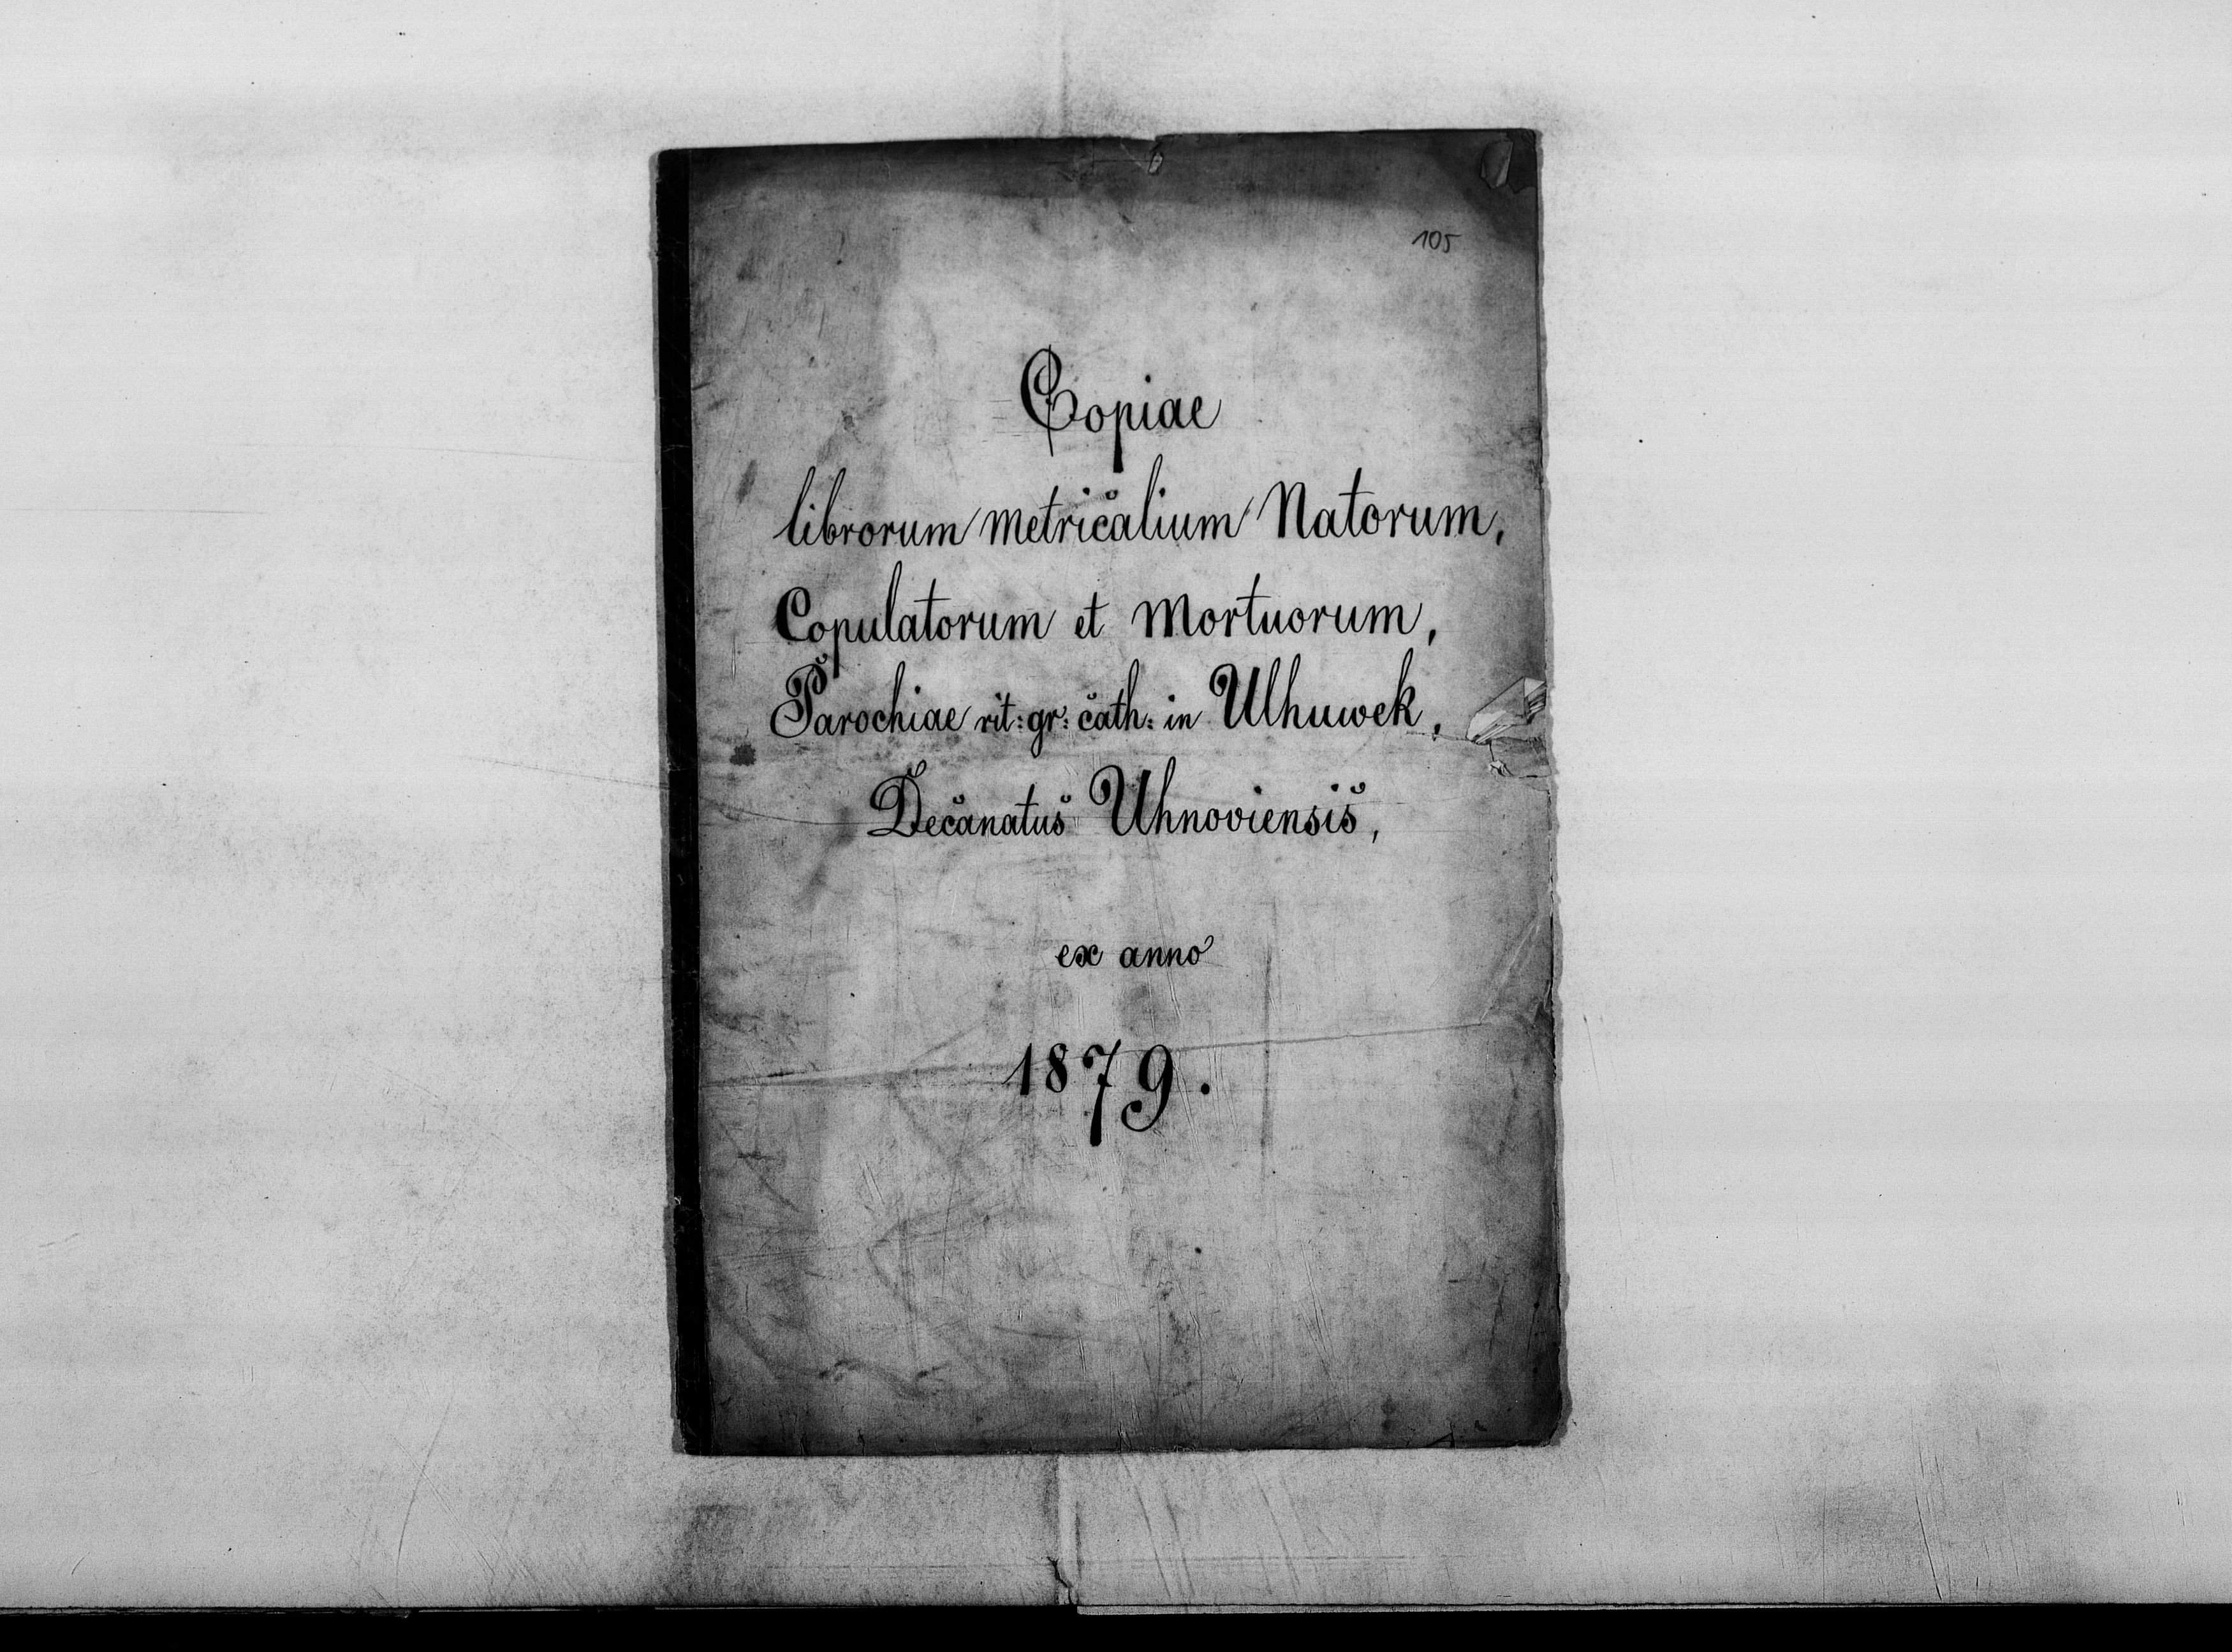 105
Copiae
librorum metricalium Natorum,
Copulatorum et Mortuorum,
Parochiae rit: gr: cath: in Ulhuwek,
Decanatus Uhnoviensis,
ex anno
1879.